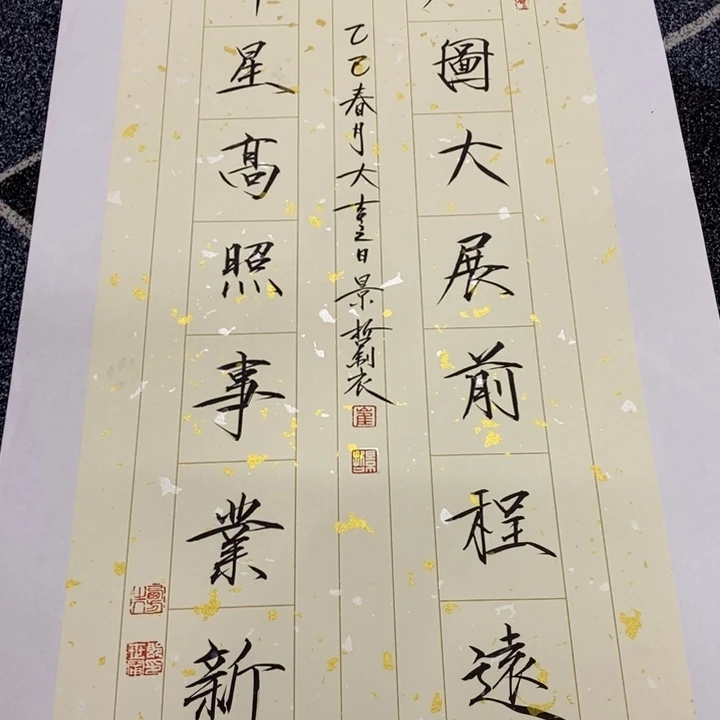 圖大展前程遠
乙巳春月大吉之日景哲製
星髙照事業新
崔
景哲